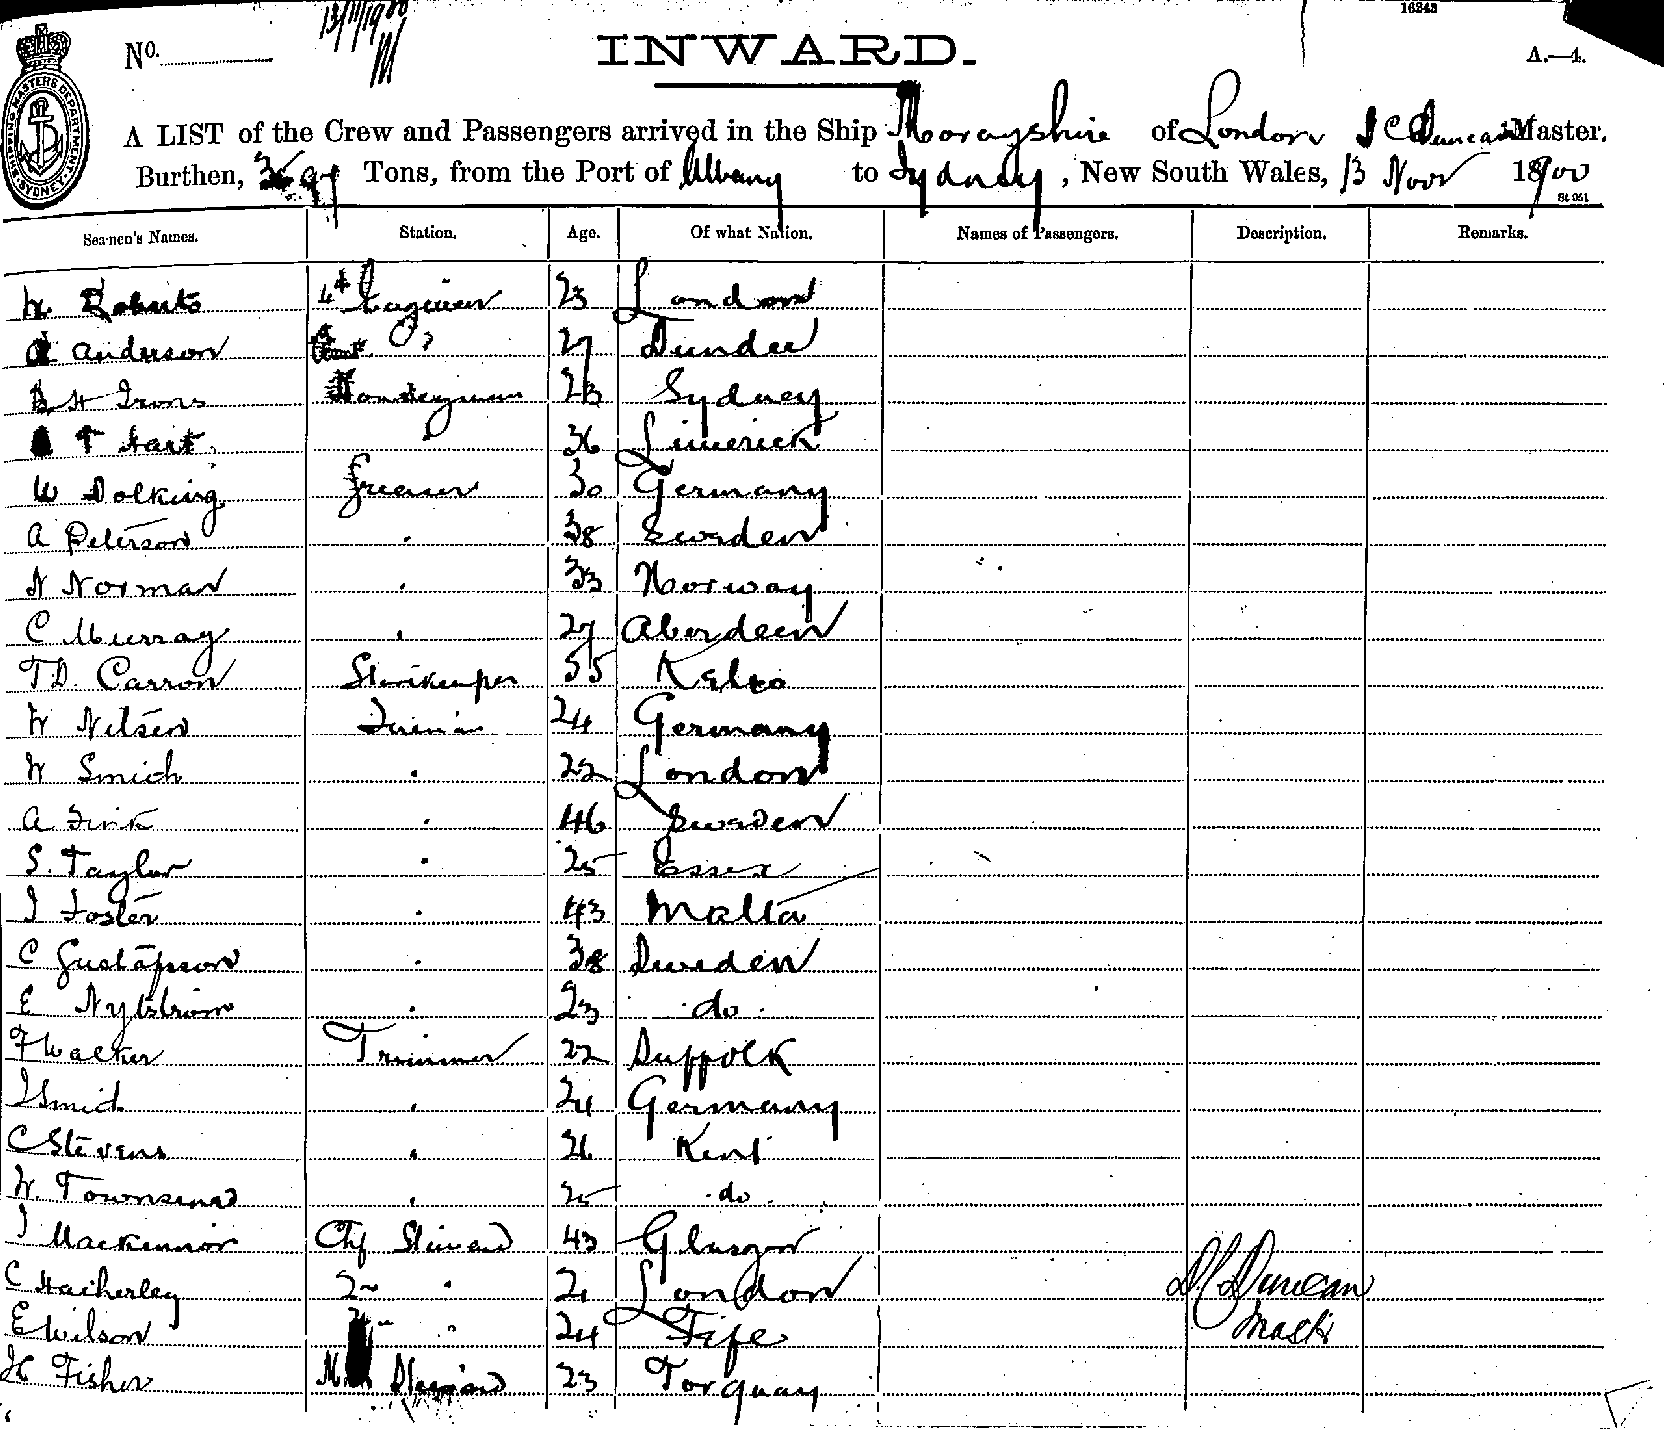 16243
13/11/1900
No.
INWARD.
A.—4.
SHIPPING MASTERS DEPARTMENT SYDNEY
A LIST of the Crew and Passengers arrived in the Ship Morayshire of London D C Duncan Master.
Burthen, Tons, from the Port of Albany to Sydney, New South Wales, 13 Novr 1900
Seamen's Names. Station. Age. Of what Nation. Names of Passengers. Description. Remarks.
W Roberts 4th Engineer 23 London
A Anderson 27 Dundee
B H Irons Donkeyman 23 Sydney
T Hart " 36 Limerick
W Dolking Greaser 30 Germany
A Peterson " 38 Sweden
N Norman " 33 Norway
C Murray " 27 Aberdeen
T.D. Carron Storekeeper 55 Kelso
W Nelsen Fireman 24 Germany
W Smich " 22 London
A Fink " 46 Sweden
S. Taylor " 25 Essex
J Foster " 43 Malta
C Gustafsson " 38 Sweden
E Nylström " 23 do
F Walker Trimmer 22 Suffolk
J Smich " 24 Germany
C Stevens " 21 Kent
W. Townsend " 25 do
J Mackinnon Chf Steward 43 Glasgow
C Hatherley 2nd " 21 London
E Wilson " 24 Fife
H Fisher Steward 23 Torquay
D C Duncan
Mastr